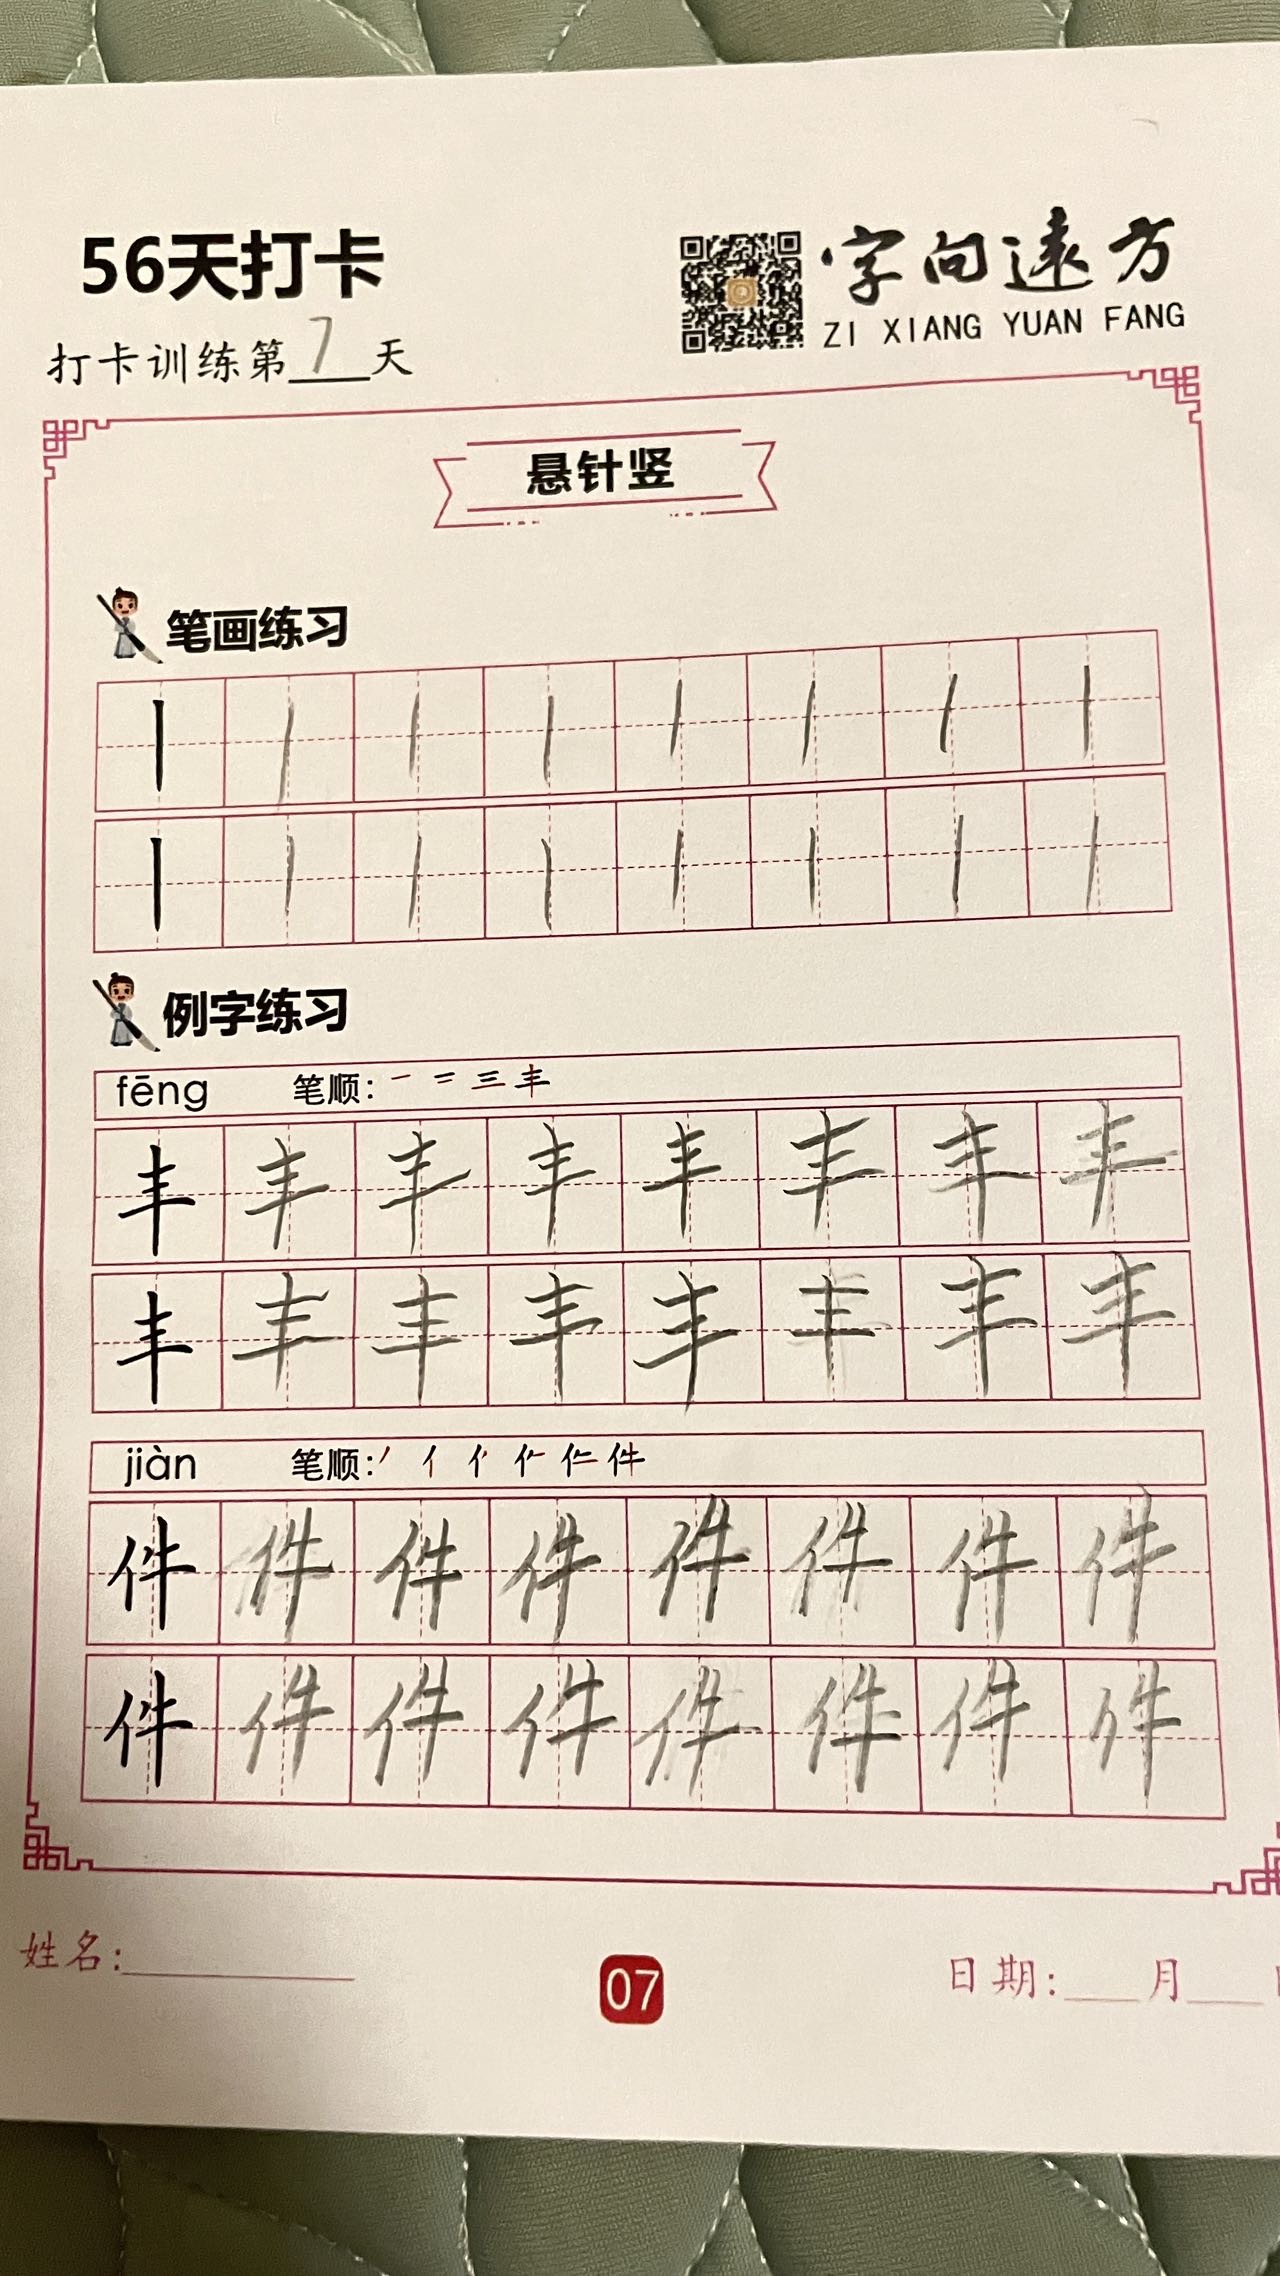 56天打卡
字向遠方
ZI XIANG YUAN FANG
打卡训练第7天
悬针竖
笔画练习
丨丨丨丨丨丨丨丨
丨丨丨丨丨丨丨丨
例字练习
fēng 笔顺: 一 二 三 丰
丰丰丰丰丰丰丰丰
丰丰丰丰丰丰丰丰
jiàn 笔顺: 件
件件件件件件件件
件件件件件件件件
姓名:
07
日期: 月